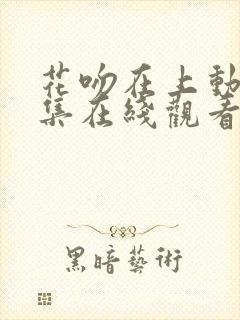 花吻在上動
集在綫觀看
黑暗藝術